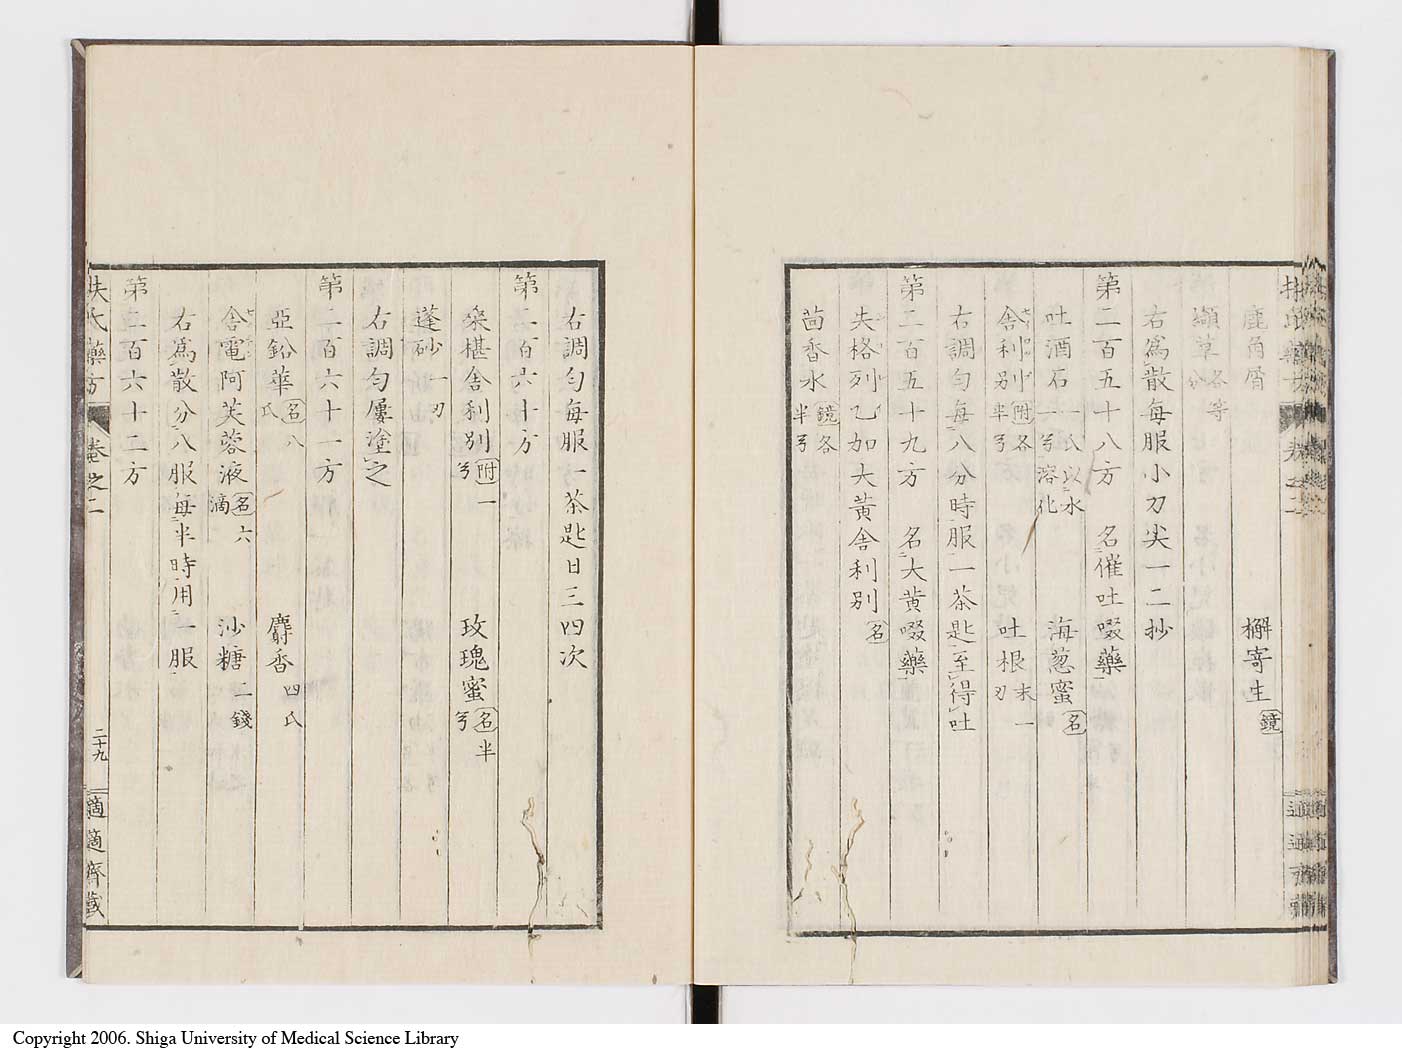 鹿角屑 檞寄生 鏡
纈草各等分
右爲散每服小刀尖一二抄
第二百五十八方 名催吐啜藥
吐酒石一氏以水一弓溶化 海葱蜜名
舍利別附各半弓 吐根末一刃
右調勻每八分時服一茶匙至得吐
第二百五十九方 名大黄啜藥
失格列乙加大黄舍利別名
茴香水鏡各半弓
右調勻每服一茶匙日三四次
第二百六十方
桒椹舍利別附一弓 玫瑰蜜名半弓
蓬砂一刃
右調勻屢塗之
第二百六十一方
亞鉛華名八氏 麝香四氏
舍電阿芙蓉液名六滴 沙糖二錢
右爲散分八服每半時用一服
第二百六十二方
扶氏藥方 卷之二 二十九 適適齋藏
Copyright 2006. Shiga University of Medical Science Library